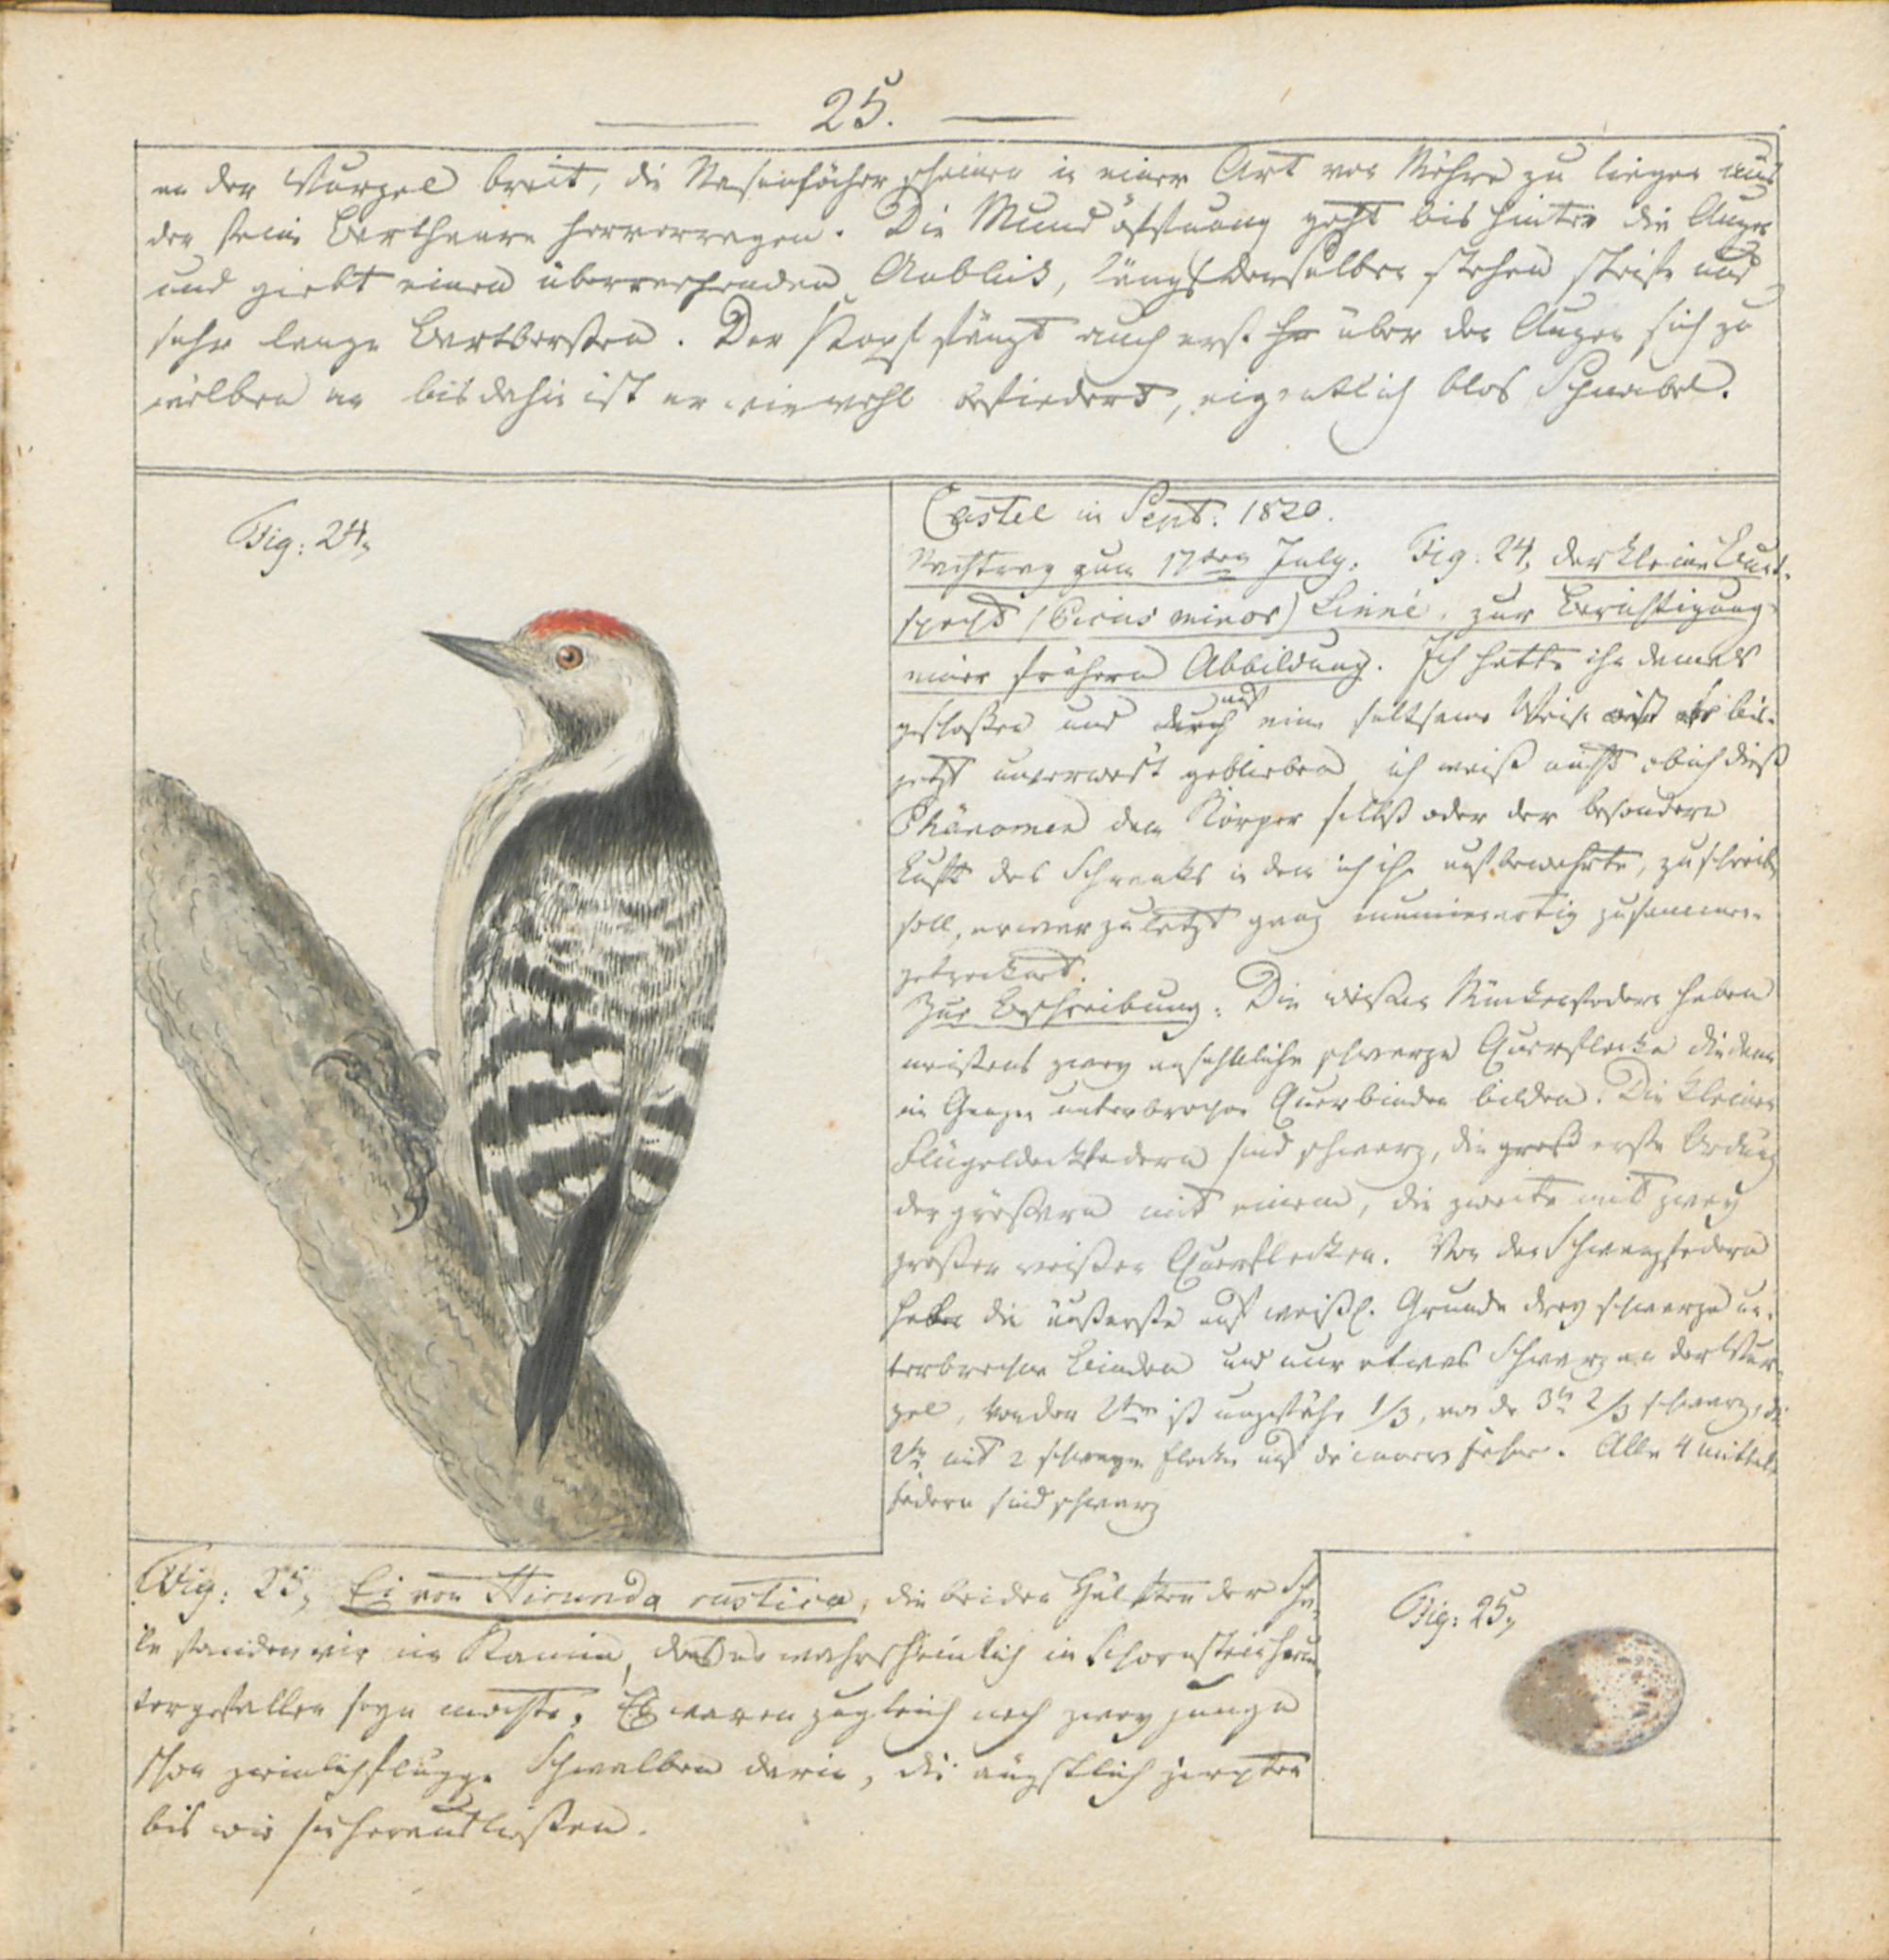 25.
an der Wurzel breit, die Nasenlöcher scheinen in einer Art von Röhre zu liegen aus
der feine Barthaare hervorragen. Die Mundöffnung geht bis hinter die Augen
und giebt einen überraschenden Anblick, längs derselben stehen steife und
sehr lange Bartborsten. Der Kopf fängt auch erst über den Augen sich zu
wölben an bis dahin ist er wiewohl befiedert, eigentlich blos Schnabel.
Fig: 24,
Castel im Sept. 1820.
Nachtrag zum 17ten July. Fig. 24, der kleine Bunt-
specht (Picus minor) Linné. zur Berichtigung
einer frühern Abbildung. Ich hatte ihn damals
geschoßen und durch auf eine seltsame Weise ist er bis
jetzt unverwest geblieben ich weiß nicht ob ich dieß
Phänomen dem Körper selbst oder der besondern
Luft des Schranks in dem ich ihn aufbewahrte, zuschreiben
soll, er war zuletzt ganz mumienartig zusammen-
getrocknet.
Zur Beschreibung: Die weißen Rückenfedern haben
meistens zwey ansehnliche schwarze Querflecke die dann
im Ganzen unterbrochne Querbinden bilden. Die kleinen
Flügeldeckfedern sind schwarz, die groß erste Ordnung
der größern mit einem, die zweite mit zwey
großen weißen Querflecken. Von den Schwanzfedern
haben die äußerste auf weißl. Grunde drey schwarze un-
terbrochne Binden und nur etwas Schwarz an der Wur-
zel, von der 2ten ist ungefähr 1/3, von der 3ten 2/3 schwarz, die
2te mit 2 schwarzen Flecken auf der innern Fahne. Alle 4 mittel-
federn sind schwarz
Fig: 25, Ei von Hirundo rustica, die beiden Hälften der Scha-
le fanden wir im Kamin, daß es wahrscheinlich im Schornstein herun-
tergefallen seyn mochte. Es waren zugleich noch zwey junge
schon ziemlich flügge Schwalben darin, die ängstlich zirpten
bis wir sie herausließen.
Fig: 25,